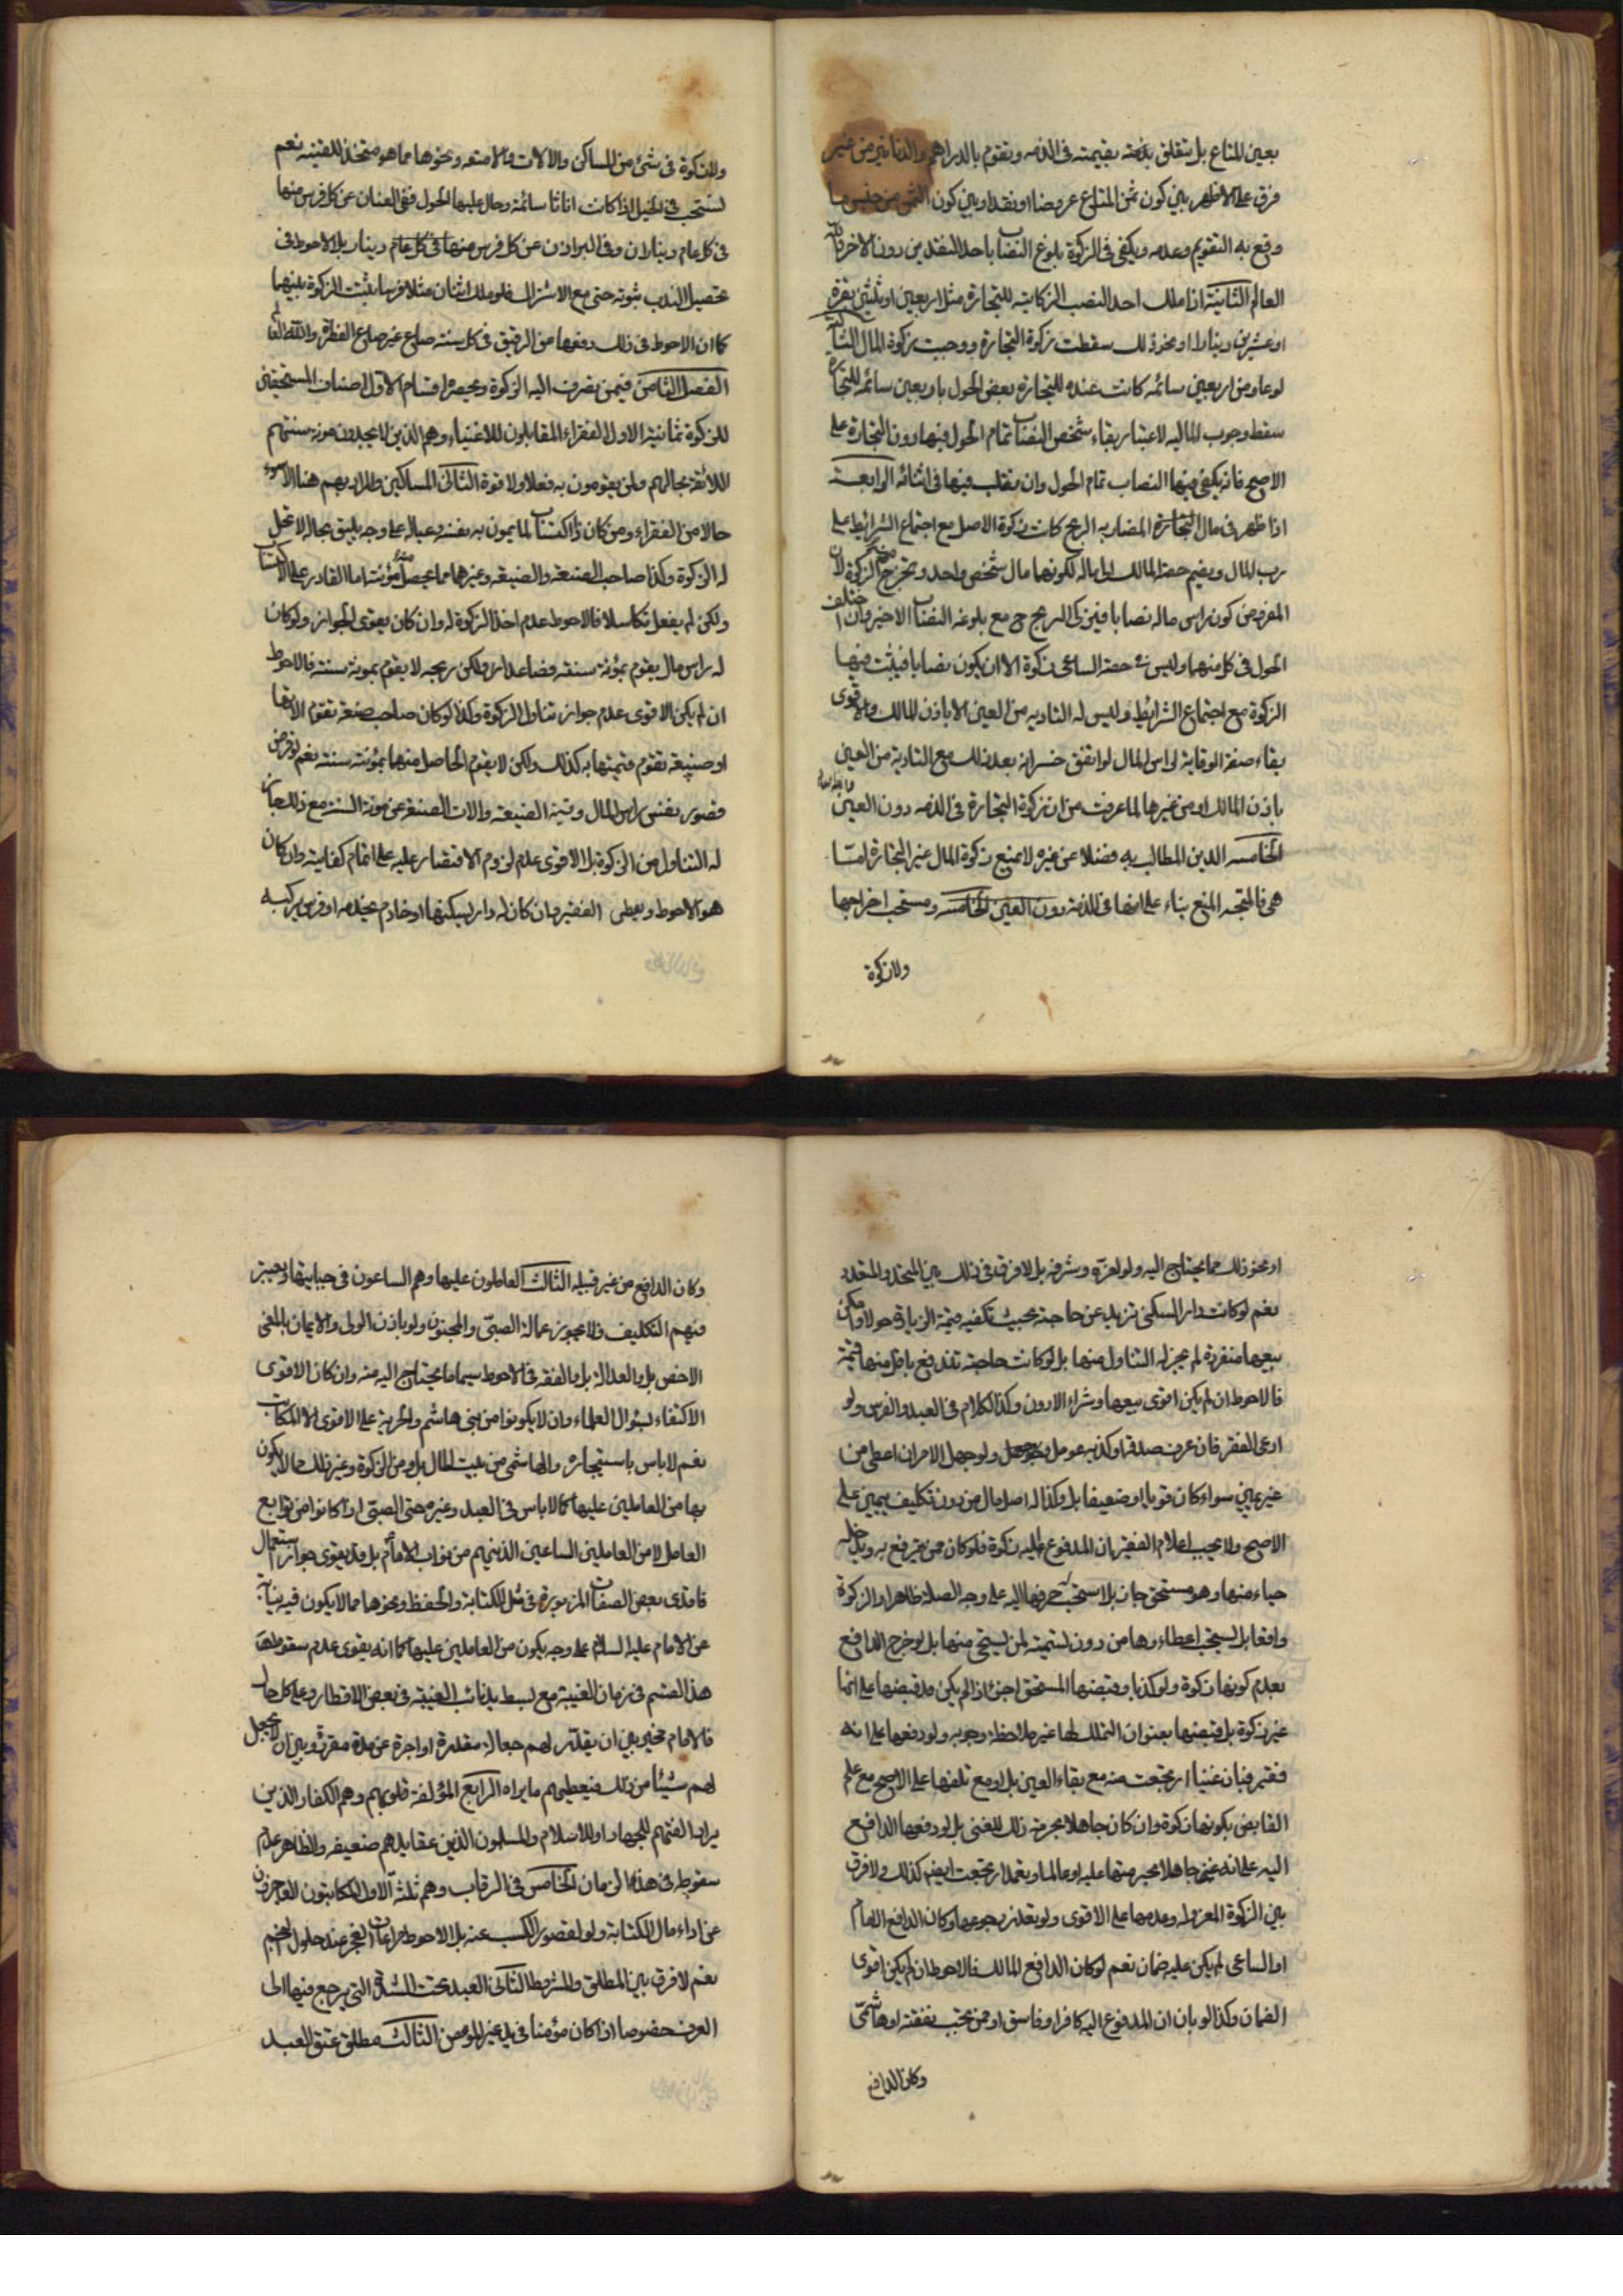 بعين المتاع بل يتعلق بذمته بقيمته في الذمه وتقوم بالدراهم والدنانير من غير
فرق على الاظهر بين كون ثمن المتاع عروضا او نقدا وبين كون الثمن من جنس ما
وقع به التقويم وعدمه ويكفي في الزكوة بلوغ النصاب باحد النقدين دون الاخر والله
العالم الثانية اذا ملك احد النصب الزكاتيه للتجارة مثل اربعين او ثلثين بقرة
او عشرين دينارا او نحو ذلك سقطت زكوة التجارة ووجبت زكوة المال الثالثة
لو عاوض اربعين سائمه كانت عنده للتجارة بعض الحول باربعين سائمه للتجارة
سقط وجوب الماليه لاعتبار بقاء شخص النصاب تمام الحول فيها دون التجارة على
الاصح فانه يكفي فيها النصاب تمام الحول وان تقلب فيها في اثنائه الرابعة
اذا ظهر في مال التجارة المضاربه الربح كانت زكوة الاصل مع اجتماع الشرائط على
رب المال ويضم حصة المالك الى ماله لكونها مال شخص واحد وتخرج منه الزكوة لان
المفروض كون راس ماله نصابا فيزكى الربح ح مع بلوغه النصاب الاخير وان اختلف
الحول في كل منهما وليس في حصة الساعي زكوة الا ان يكون نصابا فيثبت فيها
الزكوة مع اجتماع الشرائط وليس له التاديه من العين الا باذن المالك والاقوى
بقاء صفة الوقاية لراس المال لو اتفق خسرانه بعد ذلك مع التادية من العين
باذن المالك او من غيرها لما عرفت من ان زكوة التجارة في الذمه دون العين
الخامسه الدين المطالب به فضلا عن غيره لا يمنع زكوة المال غير التجارة امّا
هي فالمتجه المنع بناء على انها في الذمة دون العين الخامسه ويستحب اخراجها
ولا زكوة
ولا زكوة في شئ من المساكن والالات والامتعه ونحوها مما هو متخذ للقنيه نعم
تستحب في الخيل اذا كانت اناثا سائمة وحال عليها الحول ففي العتاق عن كل فرس منها
في كل عام ديناران وفي البراذن عن كل فرس منها في كل عام دينار بل الاحوط في
تحصيل الندب ثبوته حتى مع الاشتراك فلو ملك اثنان مثلا فرسا ثبتت الزكوة بينهما
كما ان الاحوط في ذلك دفعها عن الرقيق في كل سنة صاع غير صاع الفطرة والله العالم
الفصل الثامن فيمن يصرف اليه الزكوة ويحصره اقسام الاول اصناف المستحقين
للزكوة ثمانية الاول الفقراء المقابلون للاغنياء وهم الذين لا يجدون مونه سنتهم
اللائقة بحالهم ولمن يقومون به فعلا ولا قوة الثاني المساكين والمراد بهم هنا الاسوء
حالا من الفقراء ومن كان ذا اكتساب لما يمون به نفسه وعياله على وجه يليق بحاله لا تحل
له الزكوة وكذا صاحب الصنعه والضيعه وغيرهما مما يحصل منه مؤنته اما القادر على الاكتساب
ولكن لم يفعل تكاسلا فالاحوط عدم اخذ الزكوة له وان كان يقوى الجواز ولو كان
له راس مال يقوم بمؤنة سنته فصاعدا ولكن ربحه لا يقوم بمونة سنته فالاحوط
ان لم يكن الاقوى عدم جواز تناول الزكوة وكذا لو كان صاحب صنعة تقوم الاتها
او ضيعة تقوم قيمتها به كذلك ولكن لا يقوم الحاصل منها بمؤنة سنته نعم لو فرض
قصور نفس راس المال وقيمة الضيعة والات الصنعة عن مونة السنة مع ذلك جاز
له التناول من الزكوة بل الاقوى عدم لزوم الاقتصار عليه على اتمام كفايته وان كان
هو الاحوط ويعطى الفقير وان كان له دار ليسكنها او خادم يخدمه او فرس يركبه
او نحو ذلك مما يحتاج اليه ولو لعزه وشرفه بل لا فرق في ذلك بين المتحد والمتعدد
نعم لو كانت دار السكنى تزيد عن حاجته بحيث تكفيه قيمة الزيادة حولا وامكن
بيعها منفردة لم يجز له التناول منها بل لو كانت حاجته تندفع باقل منها قيمة
فالاحوط ان لم يكن اقوى بيعها وشراء الادون وكذا الكلام في العبد والفرس ولو
ادعى الفقر فان عرف صدقه او كذبه عومل به ولو جهل الامران اعطى من
غير يمين سواء كان قويا او ضعيفا بل وكذا له اصل مال من دون تكليف بيمين على
الاصح ولا يجب اعلام الفقير بان المدفوع اليه زكوة فلو كان ممن يترفع به ويدخله
حياء منها وهو مستحق جاز بل استحب صرفها اليه على وجه الصلة ظاهرا والزكوة
واقعا بل يستحب اعطاءها من دون تسميته لمن يستحي منها بل لو خرج الدافع
بعدم كونها زكوة ولو كذبا وقبضها المستحق اجزئ اذا لم يكن قد قبضها على انها
غير زكوة بل قبضها بعنوان التملك لها غير ملاحظ وجوبه ولو دفعها على انه
فقير فبان غنيا ارتجعت منه مع بقاء العين بل ومع تلفها على الاصح مع علم
القابض بكونها زكوة وان كان جاهلا بحرمة ذلك للغني بل لو دفعها الدافع
اليه على انه غني جاهلا بحرمتها عليه او عالما وتعمد ارتجعت ايضا كذلك ولا فرق
بين الزكوة المعزوله وعدمها على الاقوى ولو تعذر رجوعها وكان الدافع الامام
او الساعي لم يكن عليه ضمان نعم لو كان الدافع المالك فالاحوط ان لم يكن اقوى
الضمان وكذا لو بان ان المدفوع اليه كافرا وفاسق او ممن تجب نفقته او هاشمي
وكان الدافع
وكان الدافع من غير قبيله الثالث العاملون عليها وهم الساعون في جبايتها ويعتبر
فيهم التكليف فلا يجوز عمالة الصبّي والمجنون ولو باذن الولي والايمان بالمعنى
الاخص بل والعدالة بل والفقه في الاحوط سيما ما يحتاج اليه منه وان كان الاقوى
الاكتفاء بسؤال العلماء وان لا يكونوا من بني هاشم والحرية على الاقوى الا المكاتب
نعم لا باس باستيجاره والهاشمي من بيت المال بل ومن الزكوة وغير ذلك مما لا يكون
بها من العاملين عليها كما لا باس في العبد وغيره حتى الصبي اذا كانوا من توابع
العامل لا من العاملين الساعين الذين هم من نواب الامام بل قد يقوى جواز استعمال
فاقدى بعض الصفات المزبورة في مثل الكتابة والحفظ ونحوها مما لا يكون فيه نيابة
عن الامام عليه السلام على وجه يكون من العاملين عليها كما انه يقوى عدم سقوط
هذا القسم في زمان الغيبة مع بسط يد نائب الغيبة في بعض الاقطار وعلى كل حال
فالامام مخير بين ان يقدر لهم جعالة مقدرة او اجرة عن مدة مقررة وبين ان لا يجعل
لهم شيئا من ذلك فيعطيهم ما يراه الرابع المؤلفة قلوبهم وهم الكفار الذين
يراد الفتهم للجهاد او للاسلام والمسلمون الذين عقايدهم ضعيفه والظاهر عدم
سقوطه في هذا الزمان الخامس في الرقاب وهم ثلثة الاول المكاتبون العاجزون
عن اداء مال الكتابة ولو لقصور الكسب عنه بل الاحوط مراعات العجز عند حلول النجم
نعم لا فرق بين المطلق والمشروط الثاني العبد تحت الشدة التي يرجع فيها الى
العرف خصوصا اذا كان مؤمنا في يد غير المؤمن الثالث مطلق عتق العبد